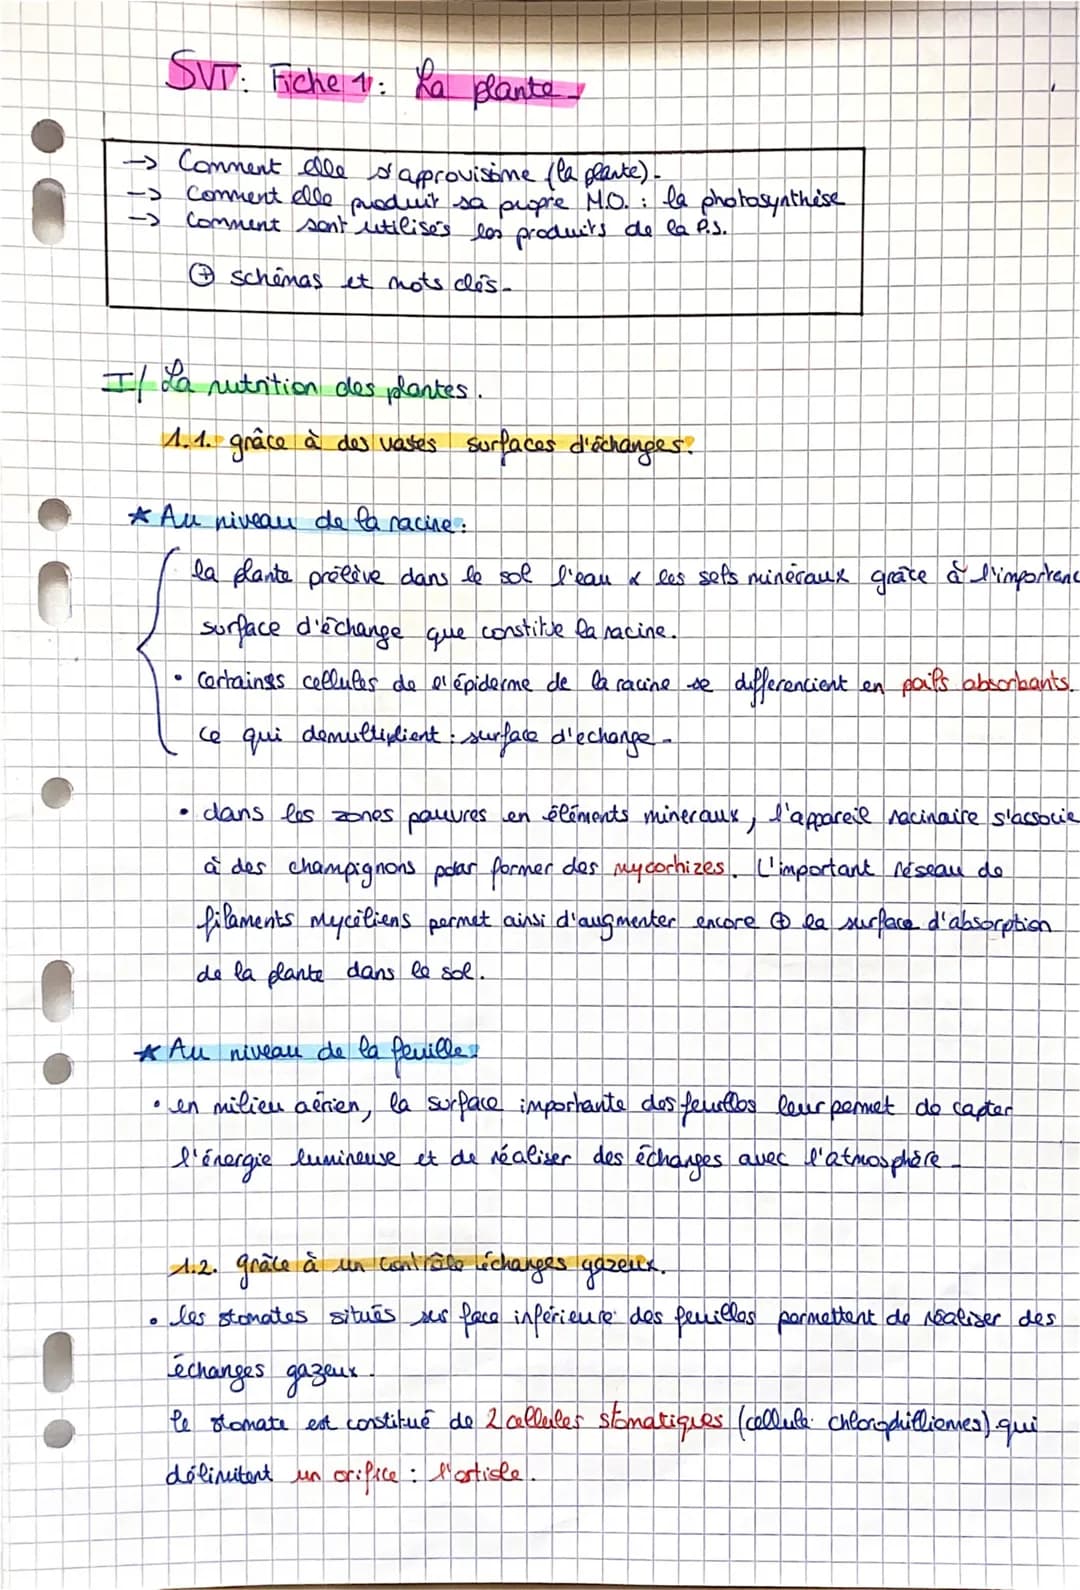 SVT: Fiche 1: La plante
→ Comment elle s'approvisione (la plante).
→ Comment elle produit sa propre M.O. : la photosynthèse
→ Comment sont utilisés les produits de la P.S.
⊕ schémas et mots clés.
I/ La nutrition des plantes.
1.1. grâce à des vastes surfaces d'échanges.
* Au niveau de la racine:
la plante prélève dans le sol l'eau & les sels minéraux grâce à l'importanc
surface d'échange que constitue la racine.
• Certaines cellules de l'épiderme de la racine se differencient en poils absorbants.
ce qui demultiplient : surface d'echange.
• dans les zones pauvres en éléments mineraux, l'appareil racinaire s'associe
à des champignons pour former des mycorhizes. L'important réseau de
filaments myceliens permet ainsi d'augmenter encore ⊕ la surface d'absorption
de la plante dans le sol.
* Au niveau de la feuille:
• en milieu aérien, la surface importante des feuilles leur permet de capter
l'énergie lumineuse et de réaliser des échanges avec l'atmosphère.
1.2. grâce à un contrôle échanges gazeux.
• les stomates situés sur face inférieure des feuilles permettent de réaliser des
échanges gazeux.
le stomate est constitué de 2 cellules stomatiques (cellule chlorophilliennes) qui
délimitent un orifice : l'ostiole.